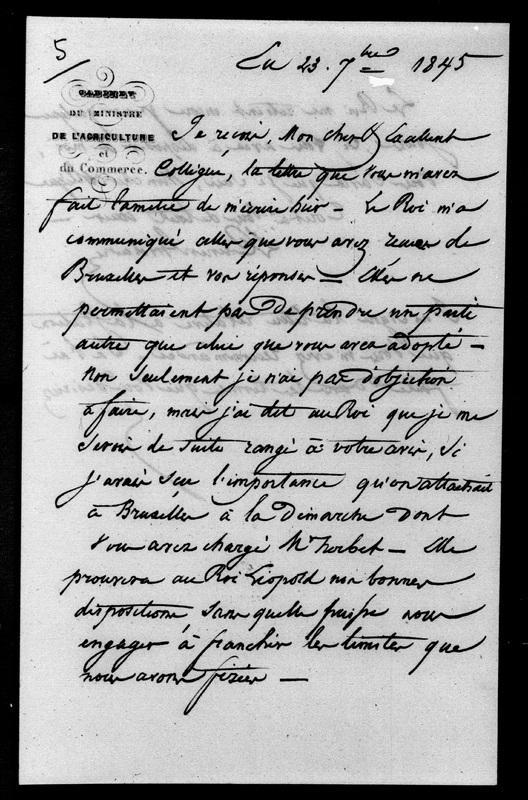 5/
Eu 23. 7bre 1845
CABINET
DU MINISTRE
DE L'AGRICULTURE
et
du Commerce.
Je reçois, Mon cher & Excellent
Collègue, la lettre que vous m'avez
fait l'amitié de m'écrire hier — Le Roi m'a
communiqué celles que vous avez reçues de
Bruxelles et vos réponses — Elles ne
permettaient pas de prendre un parti
autre que celui que vous avez adopté —
Non seulement je n'ai pas d'objection
à faire, mais j'ai dit au Roi que je me
serois de suite rangé à votre avis, si
j'avais su l'importance qu'on attachait
à Bruxelles à la démarche dont
vous avez chargé Mr herbet — Elle
prouvera au Roi Léopold nos bonnes
dispositions, sans qu'elle puisse nous
engager à franchir les limites que
nous avons fixées —